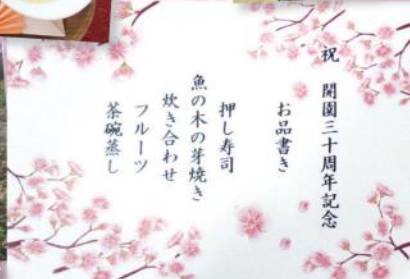 祝 開園三十周年記念
お品書き
押し寿司
魚の木の芽焼き
炊き合わせ
フルーツ
茶碗蒸し